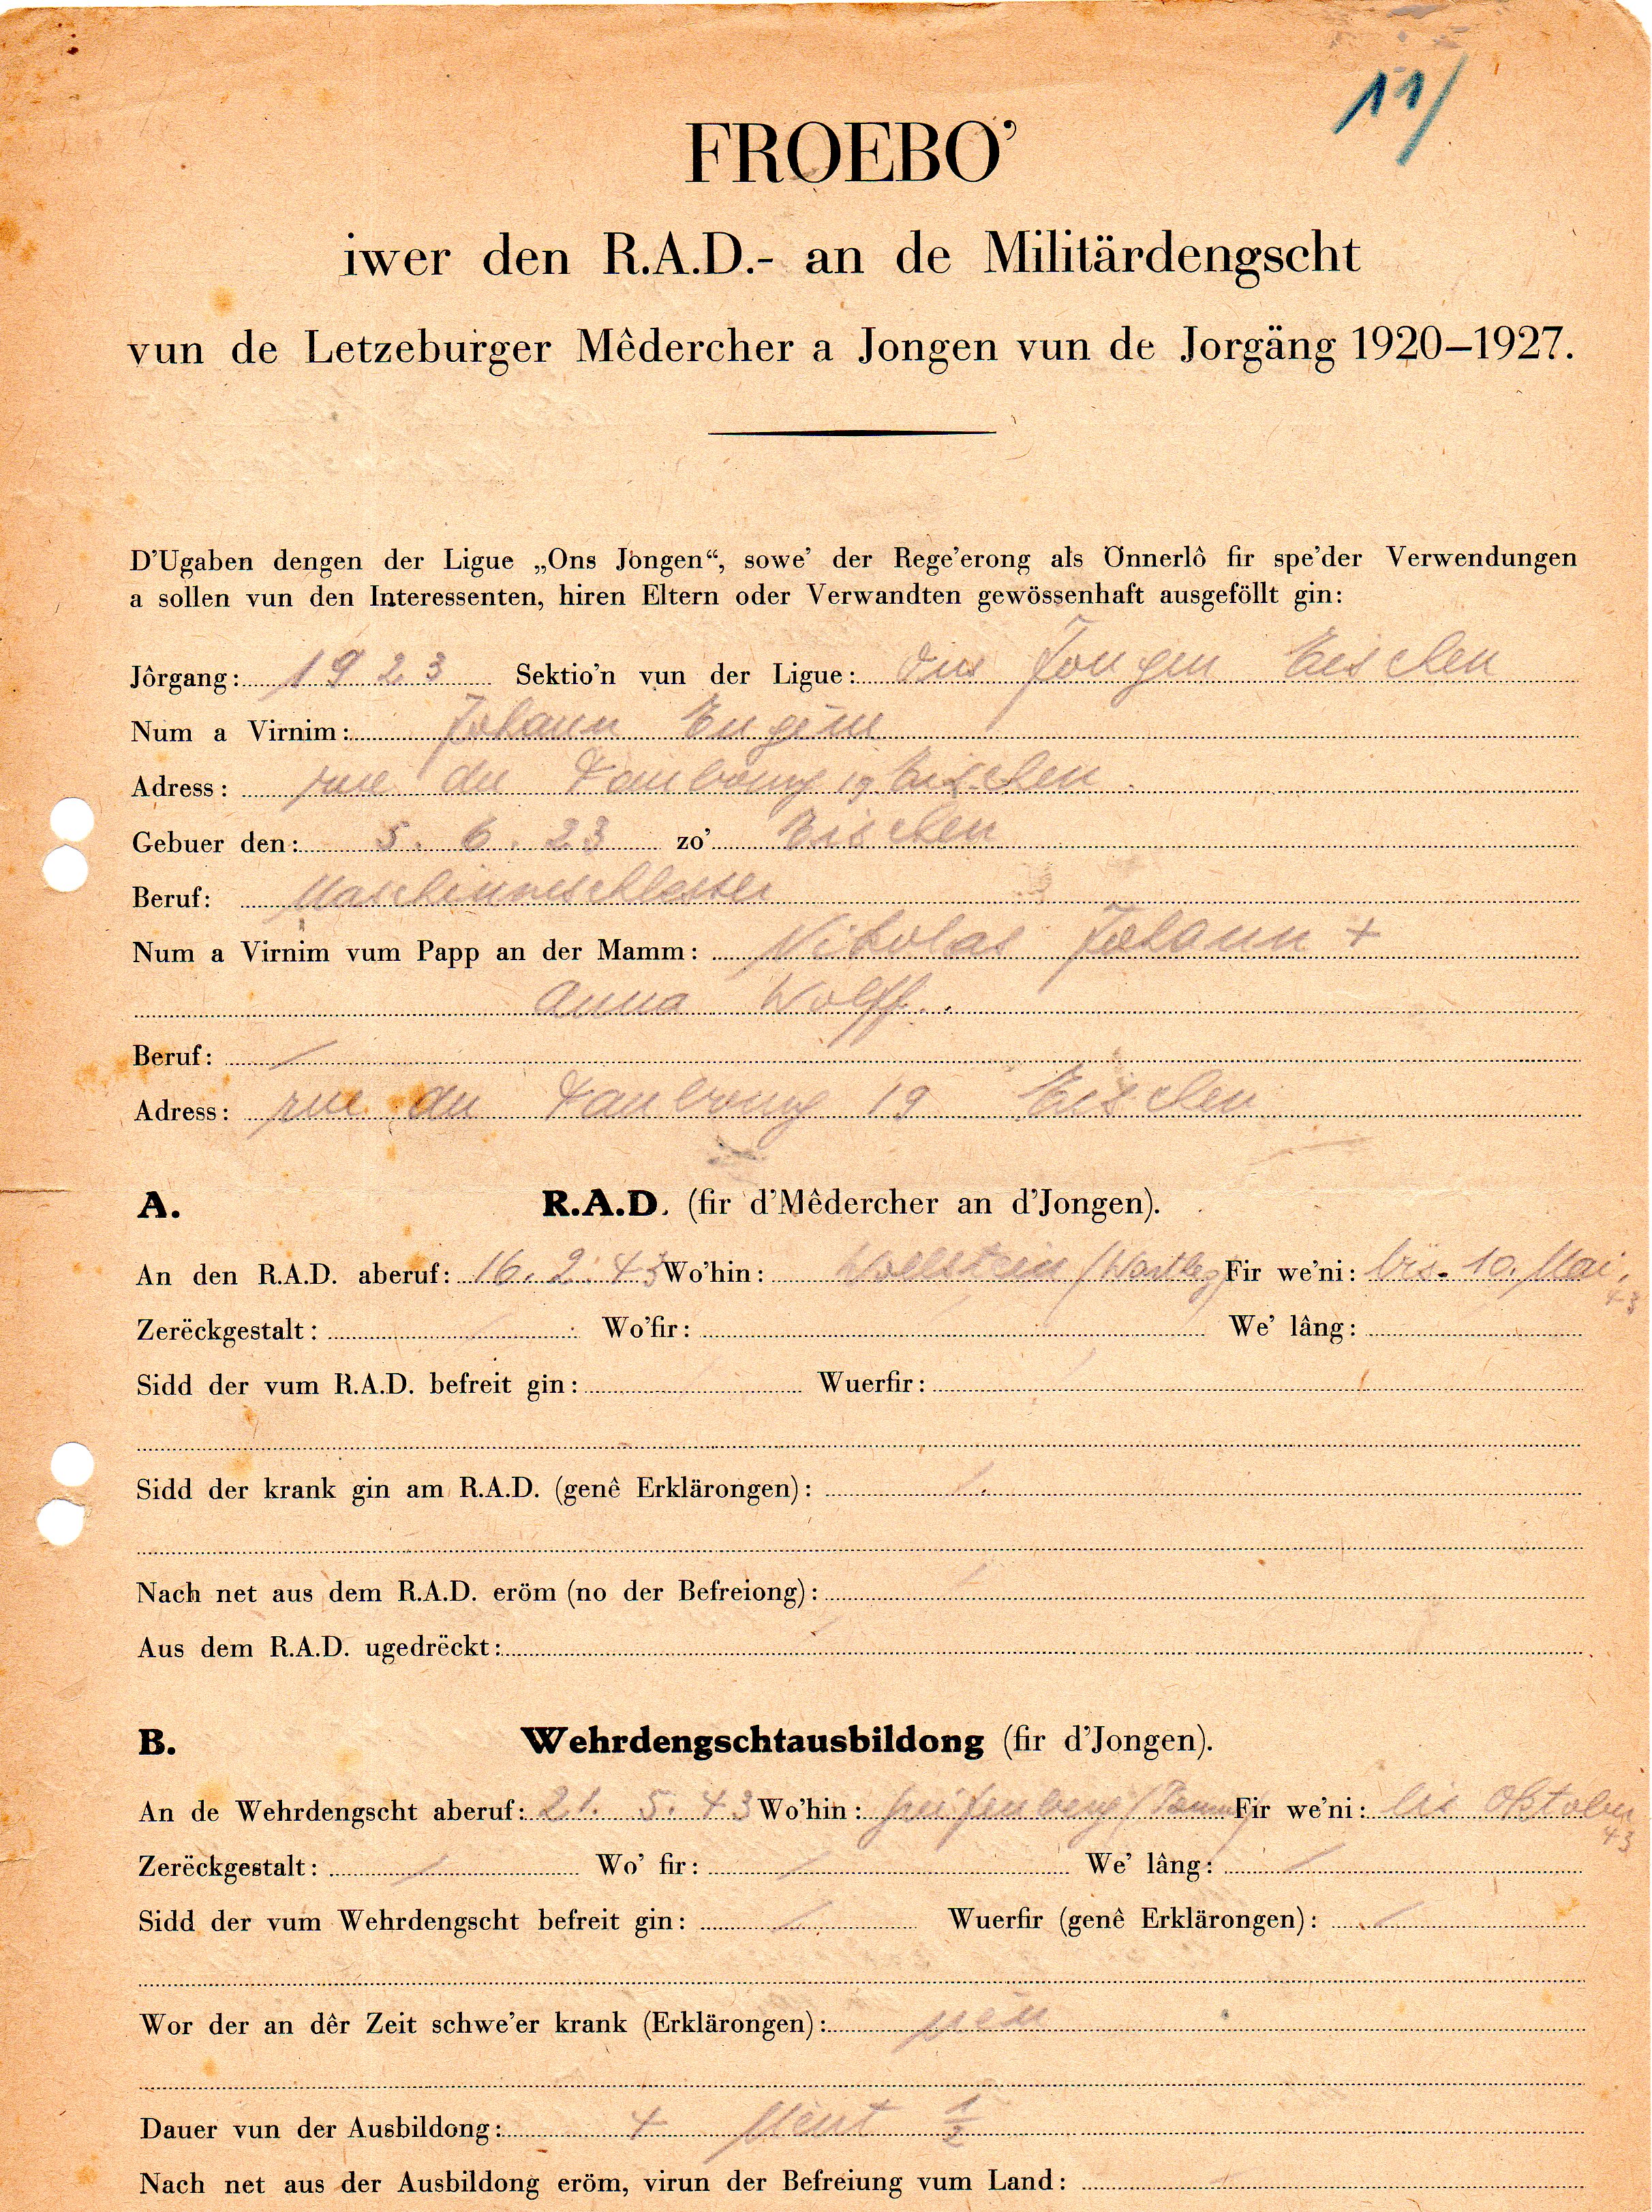 11/
FROEBO'
iwer den R.A.D.- an de Militärdengscht
vun de Letzeburger Mêdercher a Jongen vun de Jorgäng 1920–1927.
D'Ugaben dengen der Ligue „Ons Jongen“, sowe' der Rege'erong als Önnerlô fir spe'der Verwendungen
a sollen vun den Interessenten, hiren Eltern oder Verwandten gewössenhaft ausgefëllt gin:
Jôrgang: 1923 Sektio'n vun der Ligue: Ons Jongen Eischen
Num a Virnim: Johann Eugène
Adress: rue du Faubourg 19 Eischen.
Gebuer den: 5. 6. 23 zo' Eischen
Beruf: Maschinneschlosser
Num a Virnim vum Papp an der Mamm: Nikolas Johann +
Anna Wolff.
Beruf: /
Adress: rue du Faubourg 19 Eischen
A. R.A.D. (fir d'Mêdercher an d'Jongen).
An den R.A.D. aberuf: 16. 2. 43 Wo'hin: Wollstein Fir we'ni: bis. 10. Mai. 43
Zerëckgestalt: Wo'fir: We' lâng:
Sidd der vum R.A.D. befreit gin: Wuerfir:
Sidd der krank gin am R.A.D. (genê Erklärongen):
Nach net aus dem R.A.D. eröm (no der Befreiong):
Aus dem R.A.D. ugedrëckt:
B. Wehrdengschtausbildong (fir d'Jongen).
An de Wehrdengscht aberuf: 21. 5. 43 Wo'hin: Fir we'ni: bis Oktober 43
Zerëckgestalt: / Wo' fir: / We' lâng: /
Sidd der vum Wehrdengscht befreit gin: / Wuerfir (genê Erklärongen): /
Wor der an dêr Zeit schwe'er krank (Erklärongen): nèn
Dauer vun der Ausbildong: 4 Mént 1/2
Nach net aus der Ausbildong eröm, virun der Befreiung vum Land: